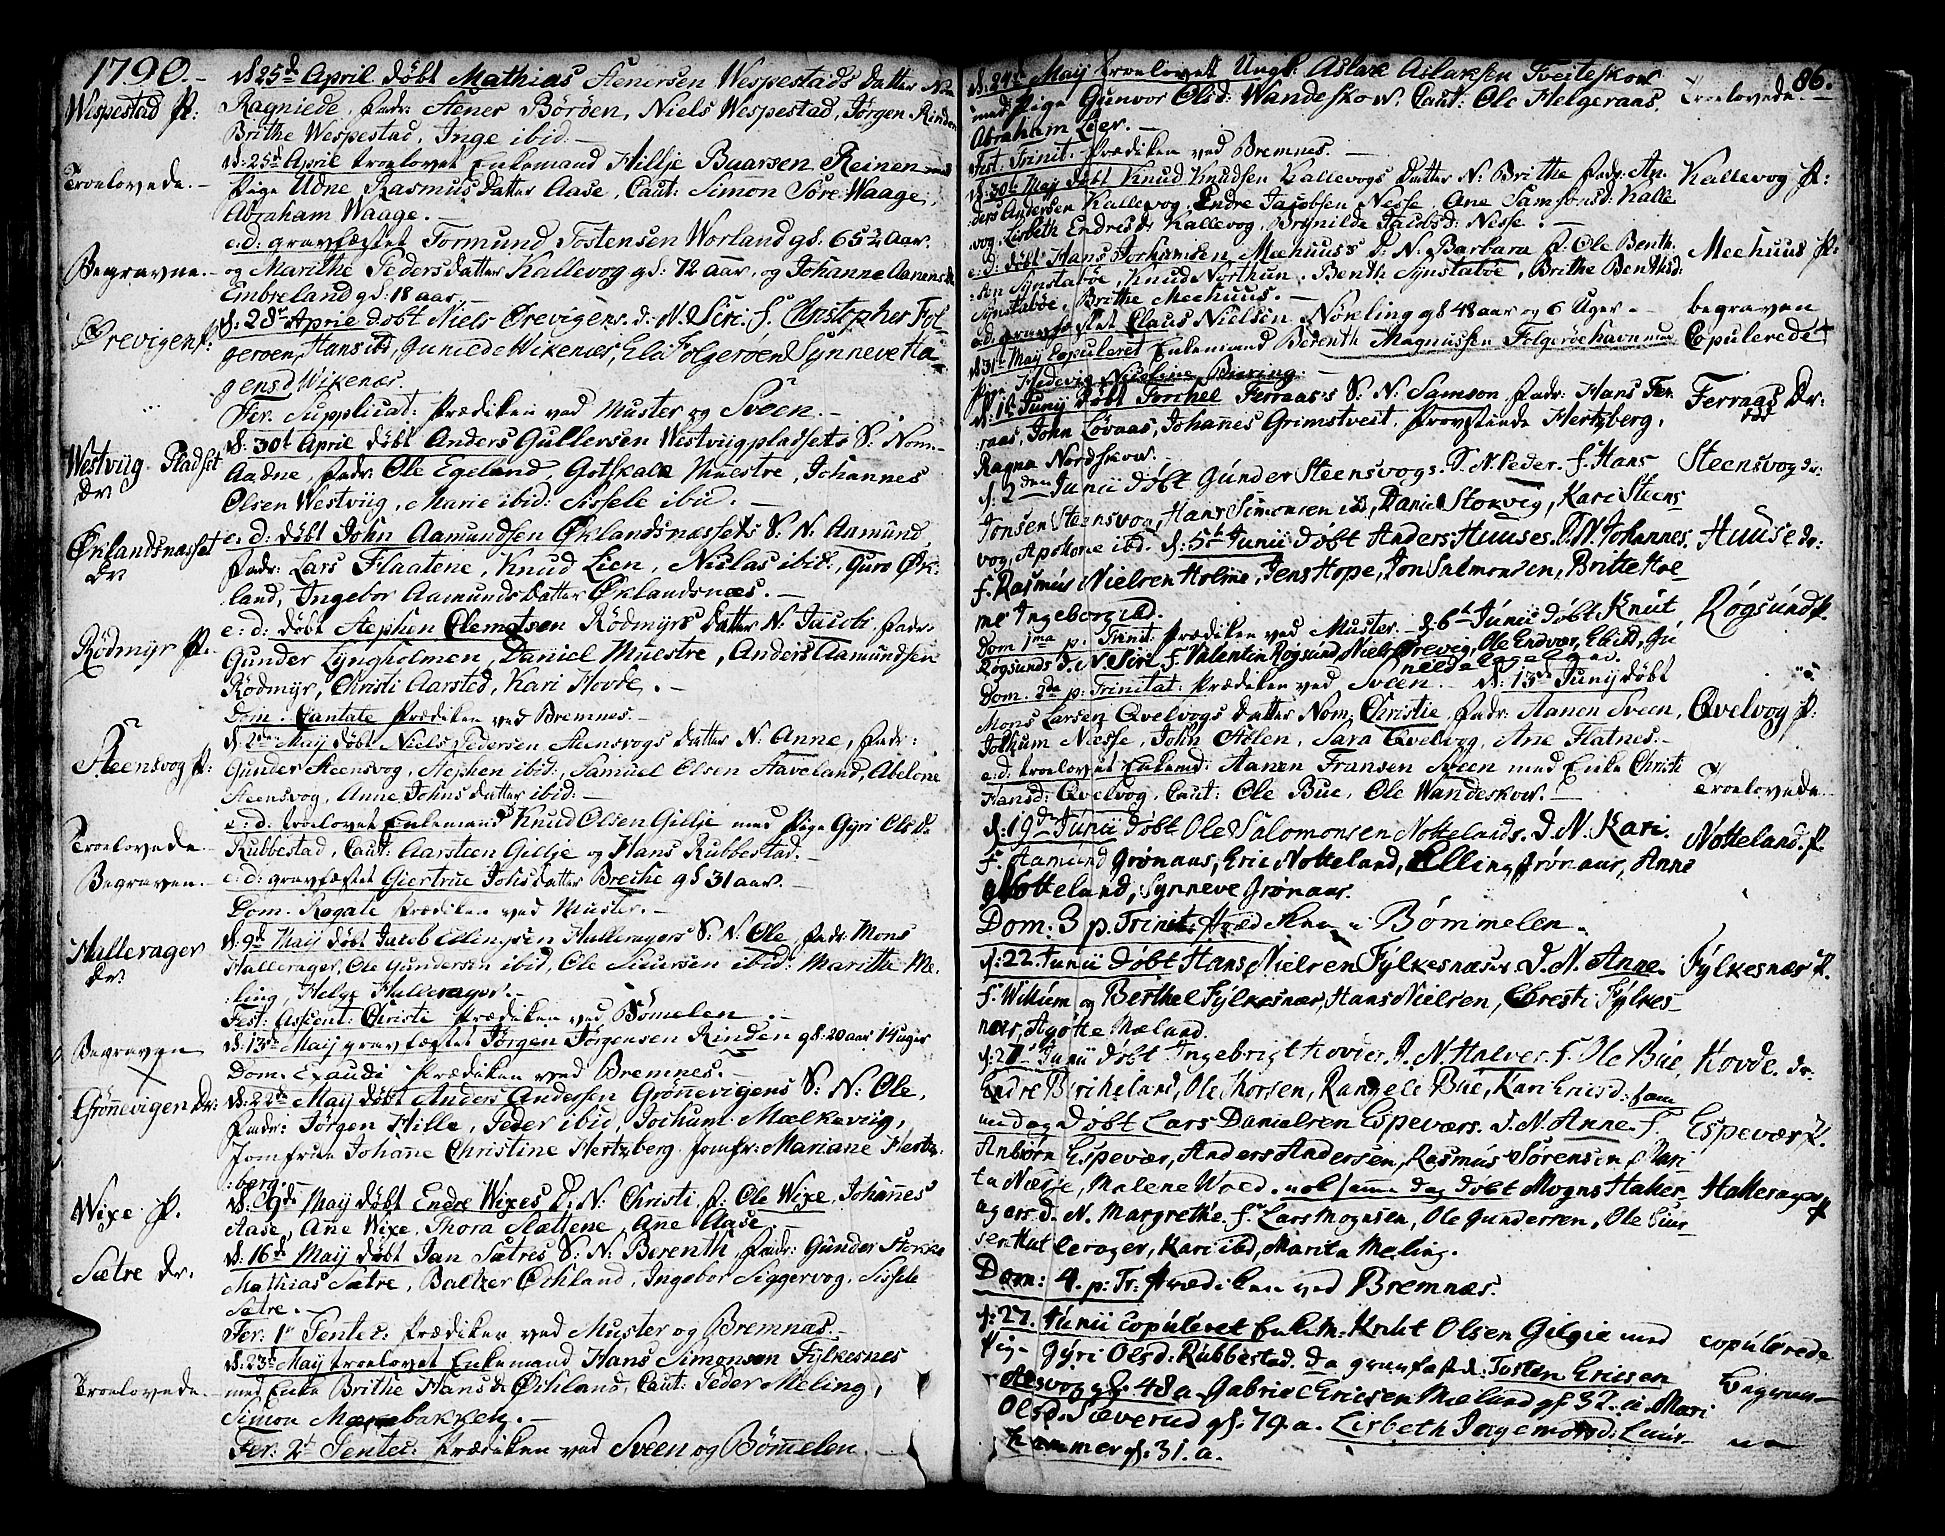 1790.-
Wespestad P: d. 25de April døbt Mathias Stenersen Wespestads datter Nom
Ragniede, fadr: Stener Börøen, Niels Wespestad, Jørgen Rinden
Brithe Wespestad, Inge ibid.-
Troelovede.- d: 25de April troelovet Enkemand Hillje Baarsen Reinen med
Pige Udne Rasmus datter Aase, Caut: Simon Søre Waage,
Abraham Waage.-
Begravne.- e: d: gravfæstet Tormund Tostensen Worland gl: 65 3/4 Aar.
og Marithe Peders datter Kallevog gl: 72 aar, og Johanne Aanensd
Embreland gl: 18 aar.-
Ørevigen P: d: 28de Aprile døbt Niels Ørevigens. d: N. Siri. f. Christopher Fol-
geroen, Hans ibd, Gunilde Wikenæs, Eli Folgerøen Synneve Ha-
gensd Wikenæs.
Fer: Supplicat: Prædiken ved Muster og Sveen.-
Westviig Pladset dr d: 30t April døbt Anders Gullersen Westviigpladsets S: Nom:
Aadne, fadr: Ole Egeland, Gotskalk Muestre, Johannes
Olsen Westviig, Marie ibid: Sissele ibid.-
Øklandsnæsset dr e: d: døbt John Aamundsen Øklandsnæssets S: N: Aamund,
fadr: Lars Flaatene, Knud Lien, Niclas ibid:, Guro Øk:
land, Ingebor Aamunds datter Øklandsnæs.-
Rödmyr P. e: d: døbt Stephen Clemetsen Rödmyrs datter N: Jacobi, fadr:
Gunder Lyngholmen, Daniel Muestre, Anders Aamundsen
Rödmyr, Christi Aarsted, Kari Hovde.-
Dom. Cantate Prædiken ved Bremnes.-
Steensvog P: d: 2de Maij døbt Niels Pedersen Steensvogs datter N: Anne, fadr:
Gunder Steensvog, Stephen ibid:, Samuel Olsen Staveland, Abelone
Steensvog, Anne Johns datter ibid:-
Troelovede.- e: d: troelovet Enkemand Knud Olsen Gillje med Pige Gyri Ols D:
Rubbestad, Caut: Aarsteen Gillje og Hans Rubbestad.-
Begraven.- e: d: gravfæstet Giertrue Johs datter Breihe gl 31 aar.-
Dom. Rogate Prædiken ved Muster.-
Hallerager dr: d: 9de Maij døbt Jacob Ellingsen Halleragers S: N: Ole, fadr: Mons
Hallerager, Ole Gundersen ibid, Ole Siursen ibid: Marithe Me-
ling, Helge Hallerager.-
Fest: Ascent: Christi Prædiken ved Bömelen.-
Begraven d: 13de Maij gravfæstet Jørgen Jörgensen Rinden gl: 20 aar 14 uger
Dom. Exaudi Prædiken ved Bremnes.-
Grönevigen Dr: d: 22de Maij døbt Anders Andersen Grönevigens S: N: Ole,
fadr: Jörgen Hille, Peder ibid, Jochum Mælkeviig,
Jomfrue Johañe Christine Hertzberg Jomfr: Mariane Hertz-
:berg.-
Wixe P. d: 9de Maij døbt Endre Wixes D. N: Christi f: Ole Wixe, Johañes
Aase, Añe Wixe, Thora Slættene, Ane Aase.-
Sætre dr. d: 16de Maij døbt Jan Sætres S: N: Berenth, fadr: Gunder Stokke
Mathias Sætre, Baltzer Økland, Ingebor Siggervog, Sissele
Sætre.-
Fer: 1 Pentec: Prædiken ved Muster og Bremnæs.-
Troelovede.- d: 23de Maij troelovet Enkemand Hans Simonsen Fylkesnes
med Enke Brithe Hans d. Økland, Caut: Peder Meling,
Simon Mæhlebakken.-
Fer: 2 Pentec: Prædiken ved Sveen og Bömelen.-
86.
d. 24de Maij troelovet Ungk: Aslak Aslaksen Tveiteskow Troelovede.-
med Pige Gunvor Olsd: Wandeskow. Caut: Ole Helgeraas,
Abraham Lier.-
Fest. Trinit. Prædiken ved Bremnes.-
d: 30te Maij døbt Knud Knudsen Kallevogs datter N: Brithe fadr: An- Kallevog P:
ders Andersen Kallevog, Endre Jacobsen Nesse, Ane Samsonsd: Kalle
vog, Lisbeth Endresd: Kallevog, Brynilde Jacobsd: Nesse.-
e: d: døbt Hans Meehuus's D. N. Barbara f: Ole Benth. Meehuus P:
sen Synstaböe, Knud Northun, Benthe Synstaböe, Brithe Benthsd:
Synstaböe, Brithe Meehuus.-
e: d: gravfæstet Claus Nielsen Nonling gl 48 aar og 6 Uger- begraven
d 31te Maij Copuleret Enkemand Berenth Magnussen Folgerøehavn med Copulerede
Pige Hedevig
d: 1te Junij døbt Torchel Ferraas's S: N: Samson fadr: Hans Fer- Ferraas Dr:
raas, John Løvaas, Johannes Grimstveit, Provstinde Hertzberg,
Ragna Nordskow.-
d. 2den Junii døbt Gunder Steensvogs. D. N. Peder. f. Hans Steensvog dr:
Jonsen Steensvog, Hans Simonsen ibd, Daniel Stokvig, Kari Steens-
vog, Apolone ibd. d: 5te Junii døbt Anders Huuses. D. N. Johannes. Huuse dr:
f. Rasmus Nielsen Holme, Jens Hope, Jon Salmonsen, Britte Hol-
me Ingeborg ibd.
Dom 1ma p. Trinit. Prædiken ved Muster.- d. 6te Junii døbt Knut Røgsund P.
Røgsunds D. N. Siri f. Valentin Røgsund, Niels Ørevig, Ole Endvær, Eli ibd, Gu
Dom. 2da p: Trinitat: Prædiken ved Sveen.- d: 13de Junij døbt
Mons Larsen Qvelvogs datter Nom. Christie, fadr: Aanen Sveen, Qvelvog P:
Jochum Næsse, John Stölen, Sara Qvelvog, Ane Flatnes.-
e: d: troelovet Enkemd: Aanen Fransen Sveen med Enke Christi Troelovede.
Hansd: Qvelvog, Caut: Ole Bue, Ole Wandeskow.-
d: 19de Junii døbt Ole Salomonsen Nottelands. D. N. Kari. Notteland. P.
f. Aamund Grønaas, Eric Notteland, Elling Grønaas, Anne
Notteland, Synneve Grønaas.
Dom: 3 p. Trinit. Prædiken i Bømmelen.
d: 22. Junii døbt Hans Nielsen Fylkesnæses. D. N. Anne. Fylkesnæs P.
f. Willum og Berthel Fylkesnæs, Hans Nielsen, Christi Fylkes-
næs, Agøtte Mæland.
d: 27. Junii døbt Ingebrigt Hovdes. D. N. Halver. f. Ole Bue, Hovde. dr.
Endre Birkeland, Ole Thorsen, Rangele Bue, Kari Ericsd: sam-
me dag døbt Lars Danielsen Espeværs. D. N. Anne. f. Espevær P.
Anbiörn Espevær, Anders Andersen, Rasmus Sörensen, Mari-
ta Næsse, Malene Wold. nok samme dag døbt Mogns Haller- Hallerager P
agers d. N. Margrethe. f. Lars Mognsen, Ole Gundersen, Ole Siur-
sen Hallerager, Kari ibd, Marita Meling.
Dom: 4. p: Tr: Prædiken ved Bremnæs.
d: 27. Junii copuleret Enkem: Knut Olsen Gilgie med copulerede
Pig- Gyri Olsd: Rubbestad. Da gravfæst d: Tosten Ericsen Begravne
gl. 48 a. Gabriel Ericsen Mæland gl 32. a. Mari
Olsd. Sæverud gl. 79. a. Lisbeth Ingemorsd: Luur-
hammer gl. 31. a.